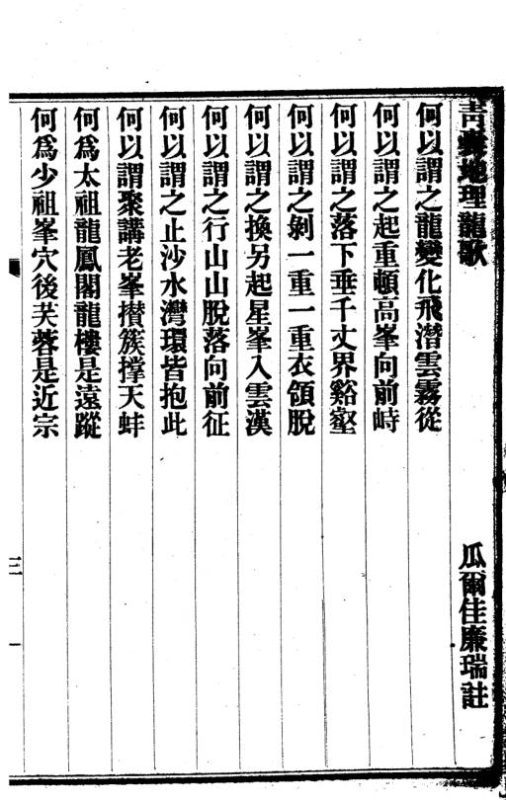 青囊地理龍歌 瓜爾佳廉瑞註
何以謂之龍變化飛潛雲霧從
何以謂之起重頓高峯向前峙
何以謂之落下垂千丈界谿壑
何以謂之剝一重一重衣領脫
何以謂之換另起星峯入雲漢
何以謂之行山山脫落向前征
何以謂之止沙水灣環皆抱此
何以謂聚講老峯攅簇撑天蚌
何為太祖龍鳳閣龍樓是遠蹤
何為少祖峯穴後芙蓉是近宗
三 一